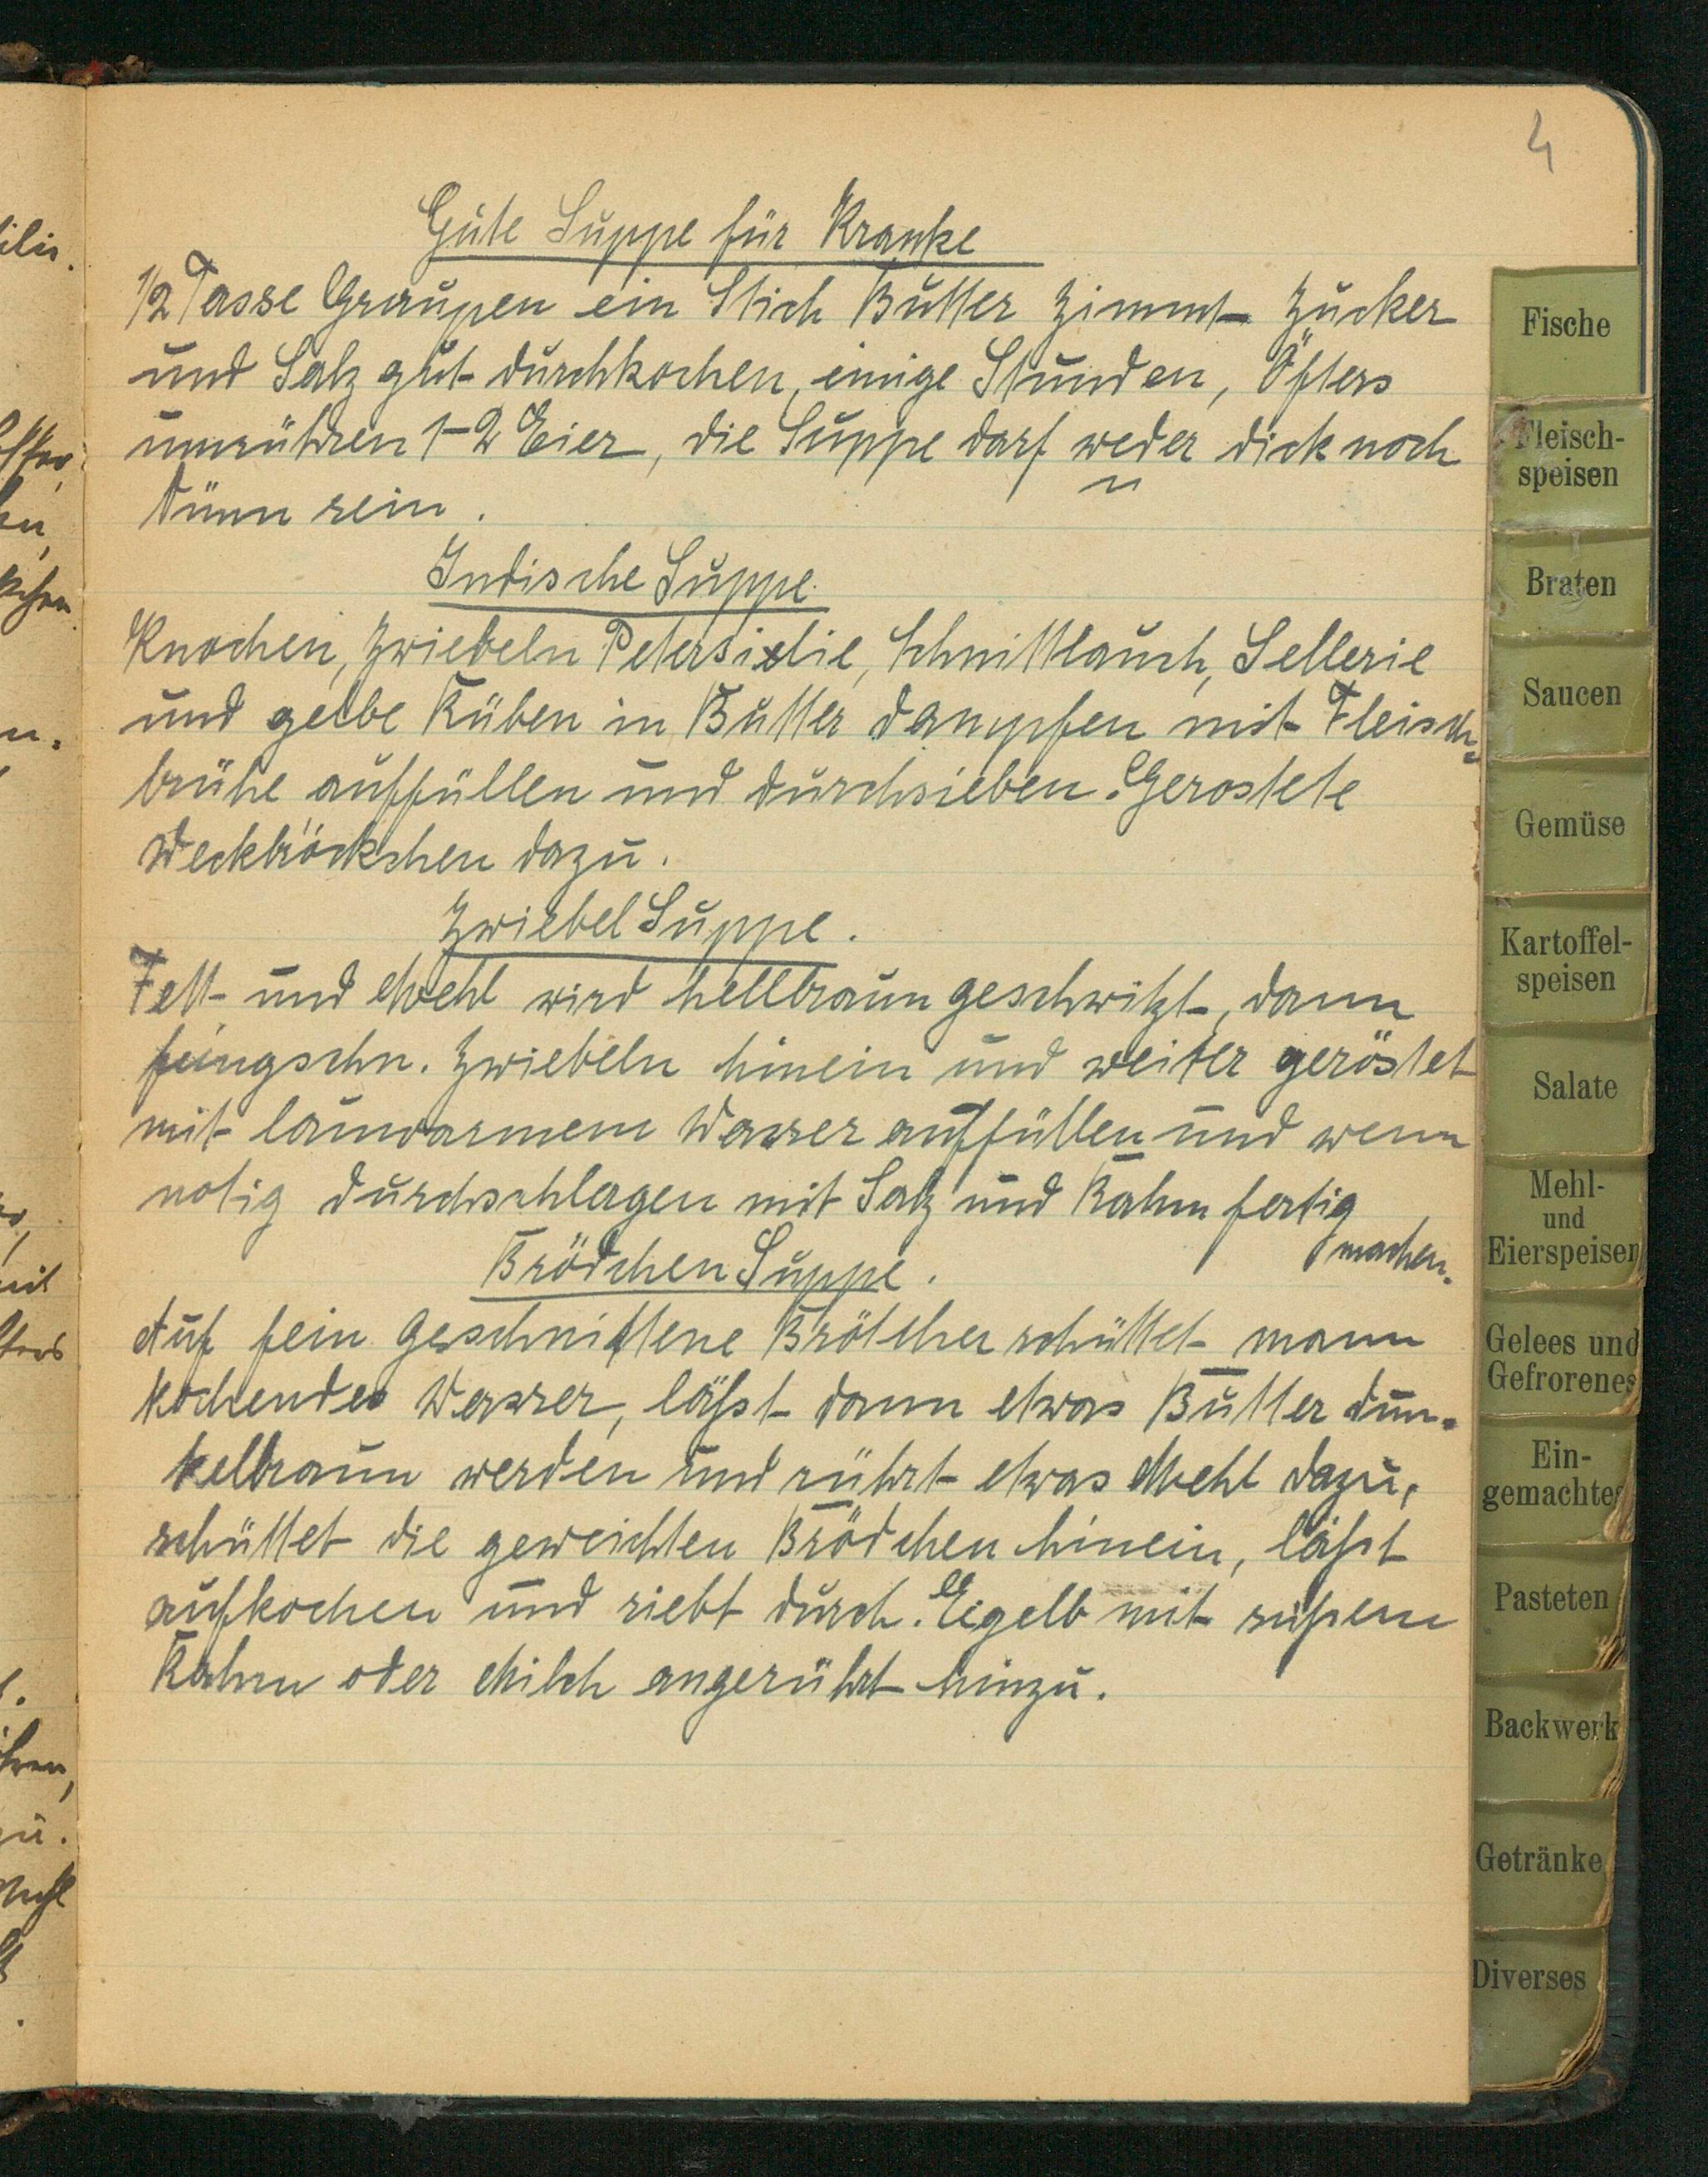 4
Gute Suppe für Kranke
1/2 Tasse Graupen ein Stich Butter Zimmt Zucker
und Salz gut durchkochen, einige Stunden, Öfters
umrühren 1-2 Eier, die Suppe darf weder dick noch
dünn sein.
Indische Suppe.
Knochen, Zwiebeln Petersilie, Schnittlauch, Sellerie
und gelbe Rüben in Butter dampfen mit Fleisch=
brühe auffüllen und durchsieben. Gerostete
Weckbröckchen dazu.
Zwiebel Suppe.
Fett und Mehl wird hellbraun geschwitzt, dann
feingschn. Zwiebeln hinein und weiter geröstet
mit lauwarmem Wasser auffüllen und wenn
notig durchschlagen mit Salz und Rahm fertig
machen.
Brödchen Suppe.
Auf fein geschnittene Brötchen schüttet mann
kochendes Wasser, läßt dann etwas Butter dun=
kelbraun werden und rührt etwas Mehl dazu,
schüttet die geweichten Brödchen hinein, läßt
aufkochen und siebt durch. Eigelb mit süßem
Rahm oder Milch angerührt hinzu.
Fische
Fleisch-
speisen
Braten
Saucen
Gemüse
Kartoffel-
speisen
Salate
Mehl-
und
Eierspeisen
Gelees und
Gefrorenes
Ein-
gemachtes
Pasteten
Backwerk
Getränke
Diverses